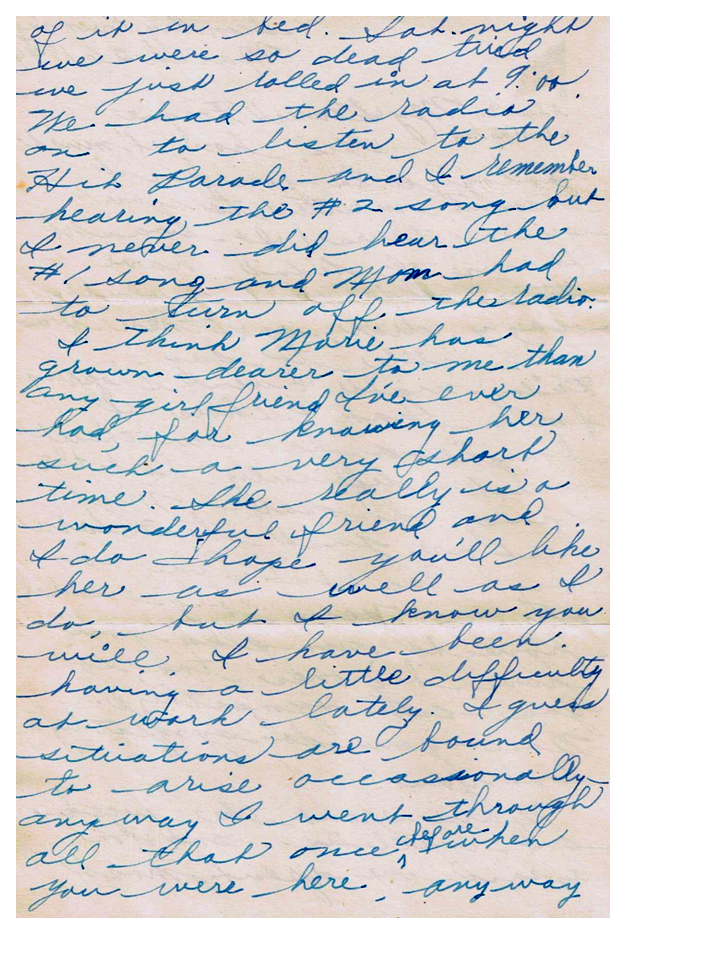 of it in bed. Sat. night
we were so dead tried
we just rolled in at 9:00.
We had the radio
on to listen to the
Hit Parade and I remember
hearing the #2 song but
I never did hear the
#1 song and Mom had
to turn off the radio.
I think Marie has
grown dearer to me than
any girl friend I've ever
had, for knowing her
such a very short
time. She really is a
wonderful friend and
I do hope you'll like
her as well as I
do, but I know you
will. I have been
having a little difficulty
at work lately. I guess
situations are bound
to arise occassionally
anyway I went through
all that once before when
you were here, anyway